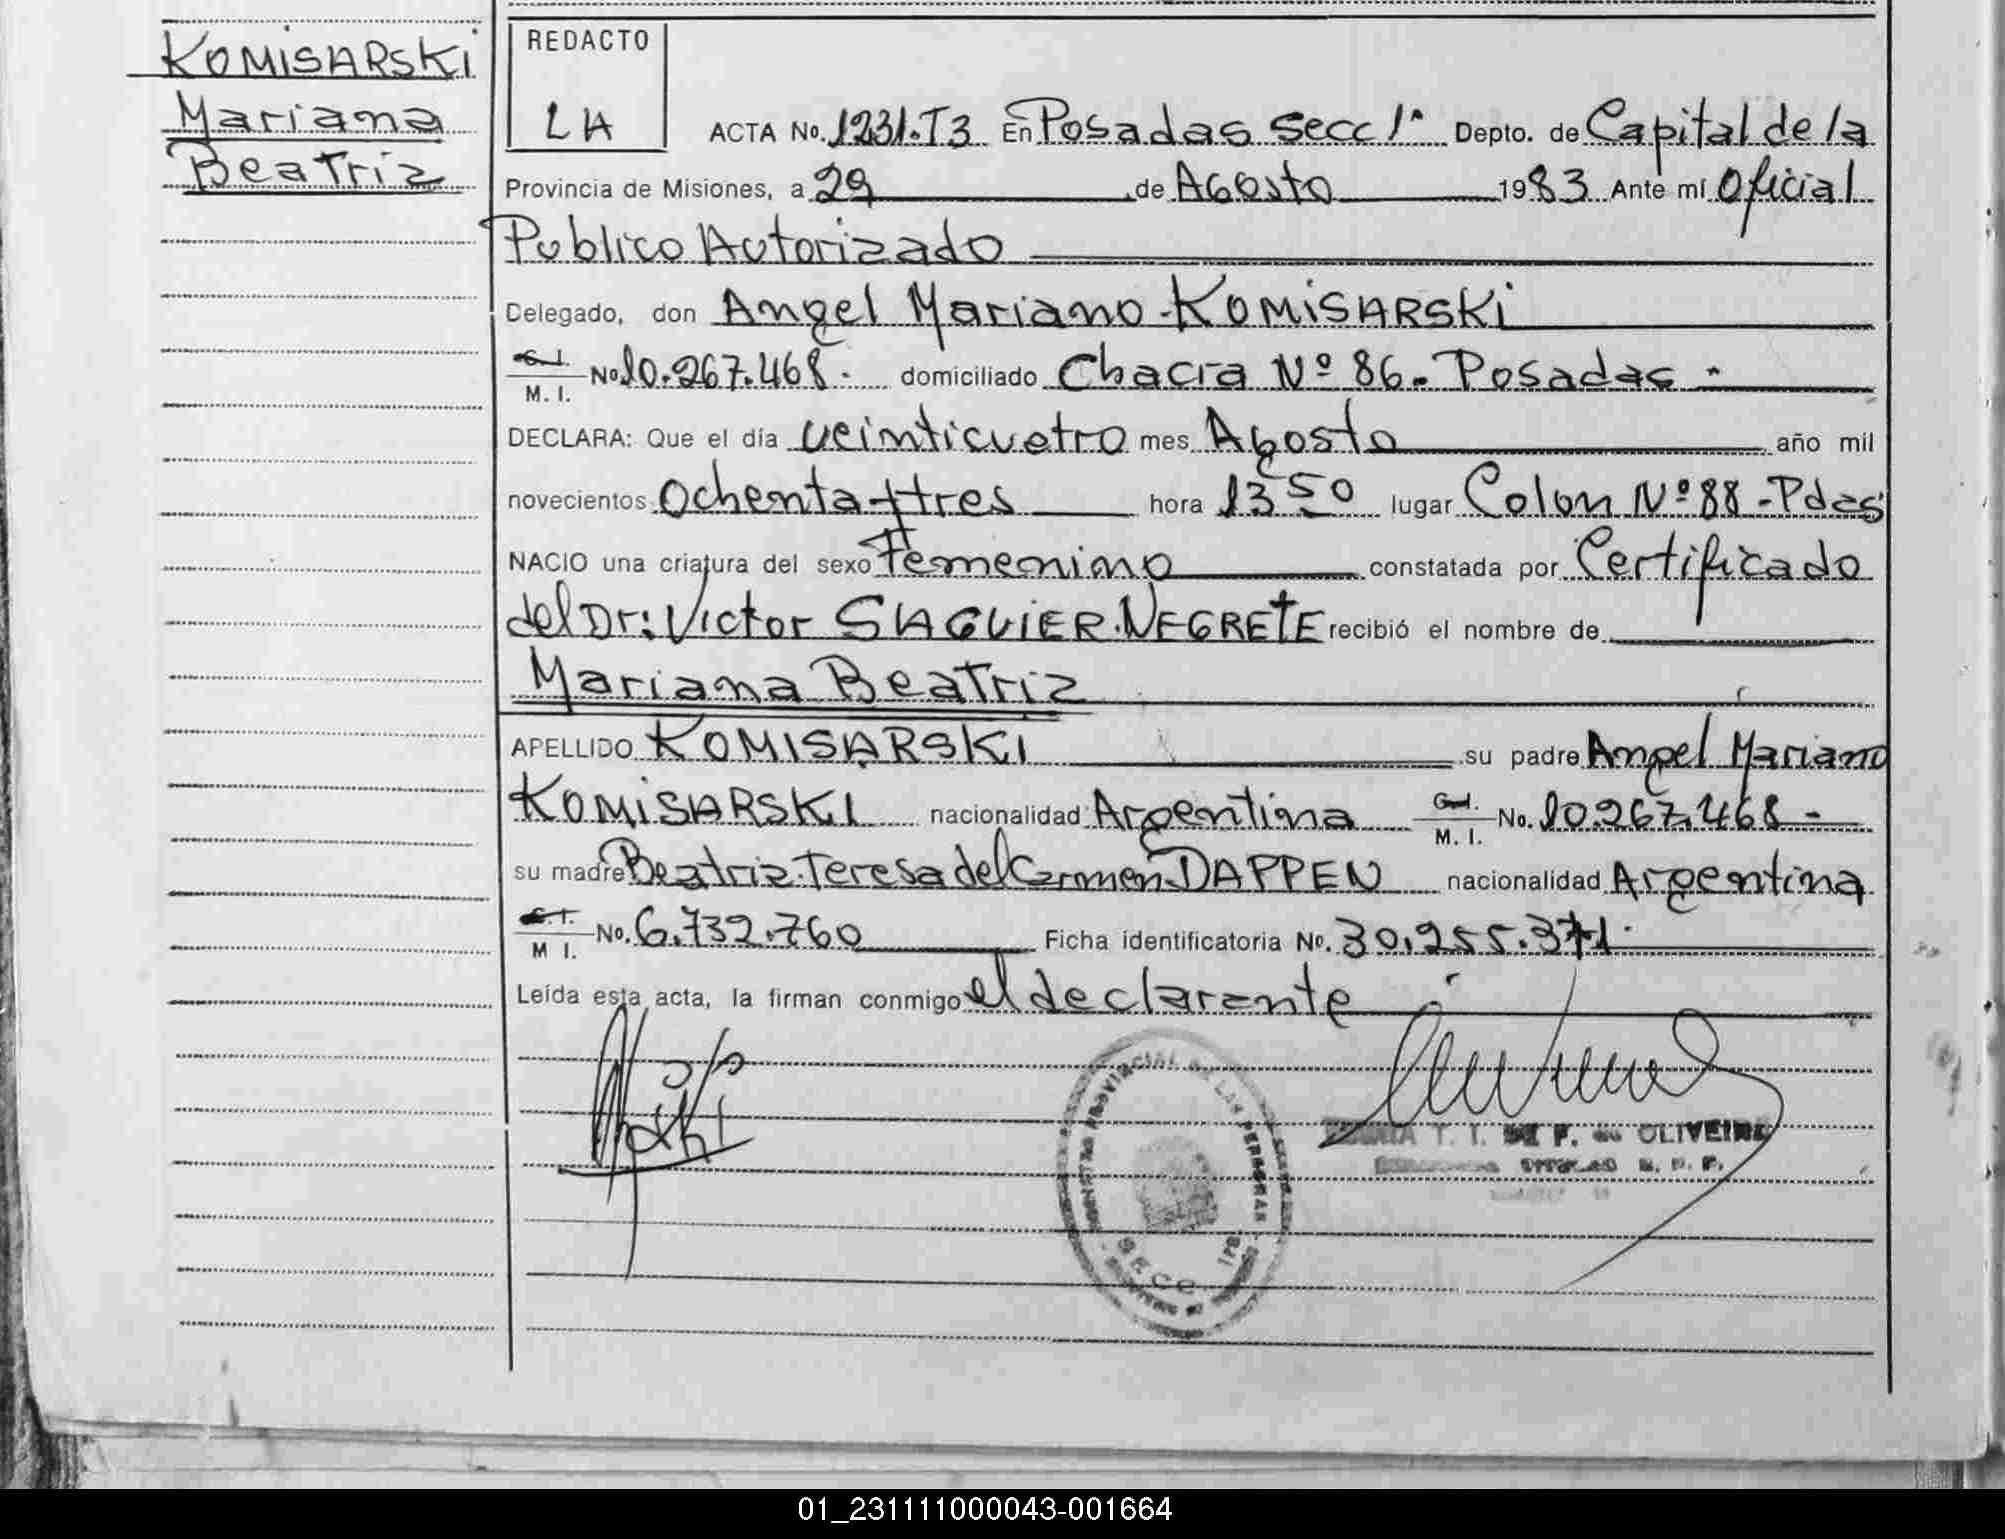 KOMISARSKI
Mariana
Beatriz
REDACTO
LA
ACTA No. 1231.T3 En Posadas Secc 1ª Depto. de Capital de la
Provincia de Misiones, a 29 de Agosto 1983 Ante mí Oficial
Publico Autorizado
Delegado, don Angel Mariano KOMISARSKI
C.I. M.I. No 10.267.468. domiciliado Chacra Nº 86. Posadas -
DECLARA: Que el día veinticuatro mes Agosto año mil
novecientos Ochenta y tres hora 13 50 lugar Colon Nº 88 - Pdas
NACIO una criatura del sexo Femenino constatada por Certificado
del Dr: Victor SAGUIER NEGRETE recibió el nombre de
Mariana Beatriz
APELLIDO KOMISARSKI su padre Angel Mariano
KOMISARSKI nacionalidad Argentina M.I. No. 10.267.468 -
su madre Beatriz Teresa del Carmen DAPPEN nacionalidad Argentina
C.I. M I. No. 6.732.760 Ficha identificatoria No. 30.255.371.
Leída esta acta, la firman conmigo el declarante
PROVINCIAL DE LAS PERSONAS
SECC
T. I. DE F. de OLIVEIRA
TITULAR R. P. P.
01_231111000043-001664